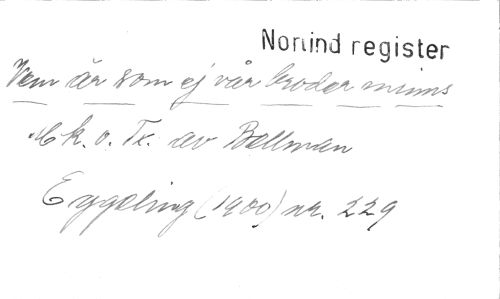 Norlind register
Vem är som ej vår broder minns
Mk. o. Tx. av Bellman
Eggeling (1900) nr. 229